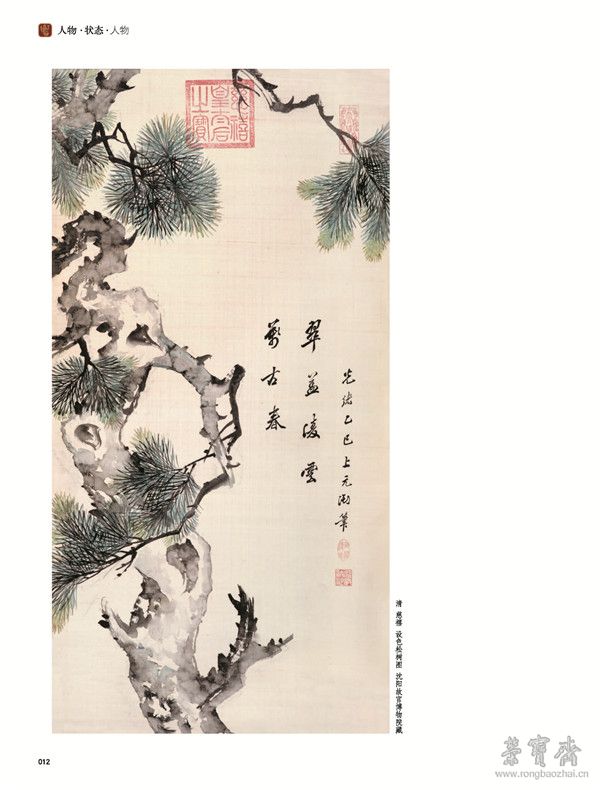 人物·状态·人物
慈禧
皇太后
之宝
翠盖凌云
万古春
光緒乙巳上元御筆
清 慈禧 设色松树图 沈阳故宫博物院藏
012
荣寶齋
www.rongbaozhai.cn